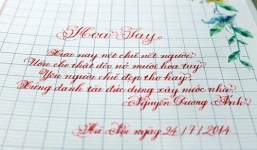 Hoa Tay
Xưa nay nét chữ nết người
Ước cho thật dẻo nở mười hoa tay
Yêu người chữ đẹp thơ hay
Xứng danh tài đức dựng xây nước nhà
Nguyễn Dương Anh
Hà Nội ngày 24.7.2014